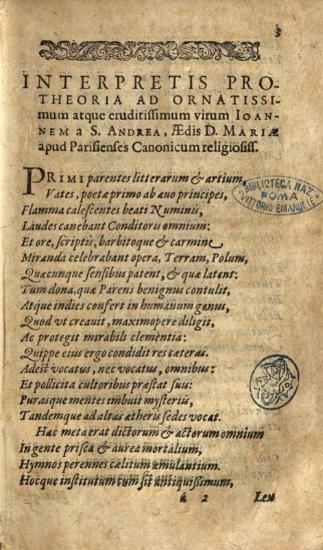 3
INTERPRETIS PRO-
THEORIA AD ORNATISSI-
mum atque eruditissimum virum IOAN-
NEM a S. ANDREA, Ædis D. MARIÆ
apud Parisienses Canonicum religiosiss.
PRIMI parentes litterarum & artium,
Vates, poetæ primo ab æuo principes,
Flamma calescentes beati Numinis,
Laudes canebant Conditoris omnium:
Et ore, scriptis, barbitoque & carmine
Miranda celebrabant opera, Terram, Polum,
Quæcunque sensibus patent, & quæ latent:
Tum dona, quæ Parens benignus contulit,
Atque indies confert in humanum genus,
Quod vt creauit, maximopere diligit,
Ac protegit mirabili clementia:
Quippe eius ergo condidit res cæteras.
Adest vocatus, nec vocatus, omnibus:
Et pollicita cultoribus præstat suis:
Purasque mentes imbuit mysteriis,
Tandemque ad altas ætheris sedes vocat.
Hæc meta erat dictorum & actorum omnium
In gente prisca & aurea mortalium,
Hymnos perennes cælitum æmulantium.
Hocque institutum cum sit antiquissimum,
a 2 Lex
BIBLIOTECA NAZ
ROMA
VITTORIO EMANUELE